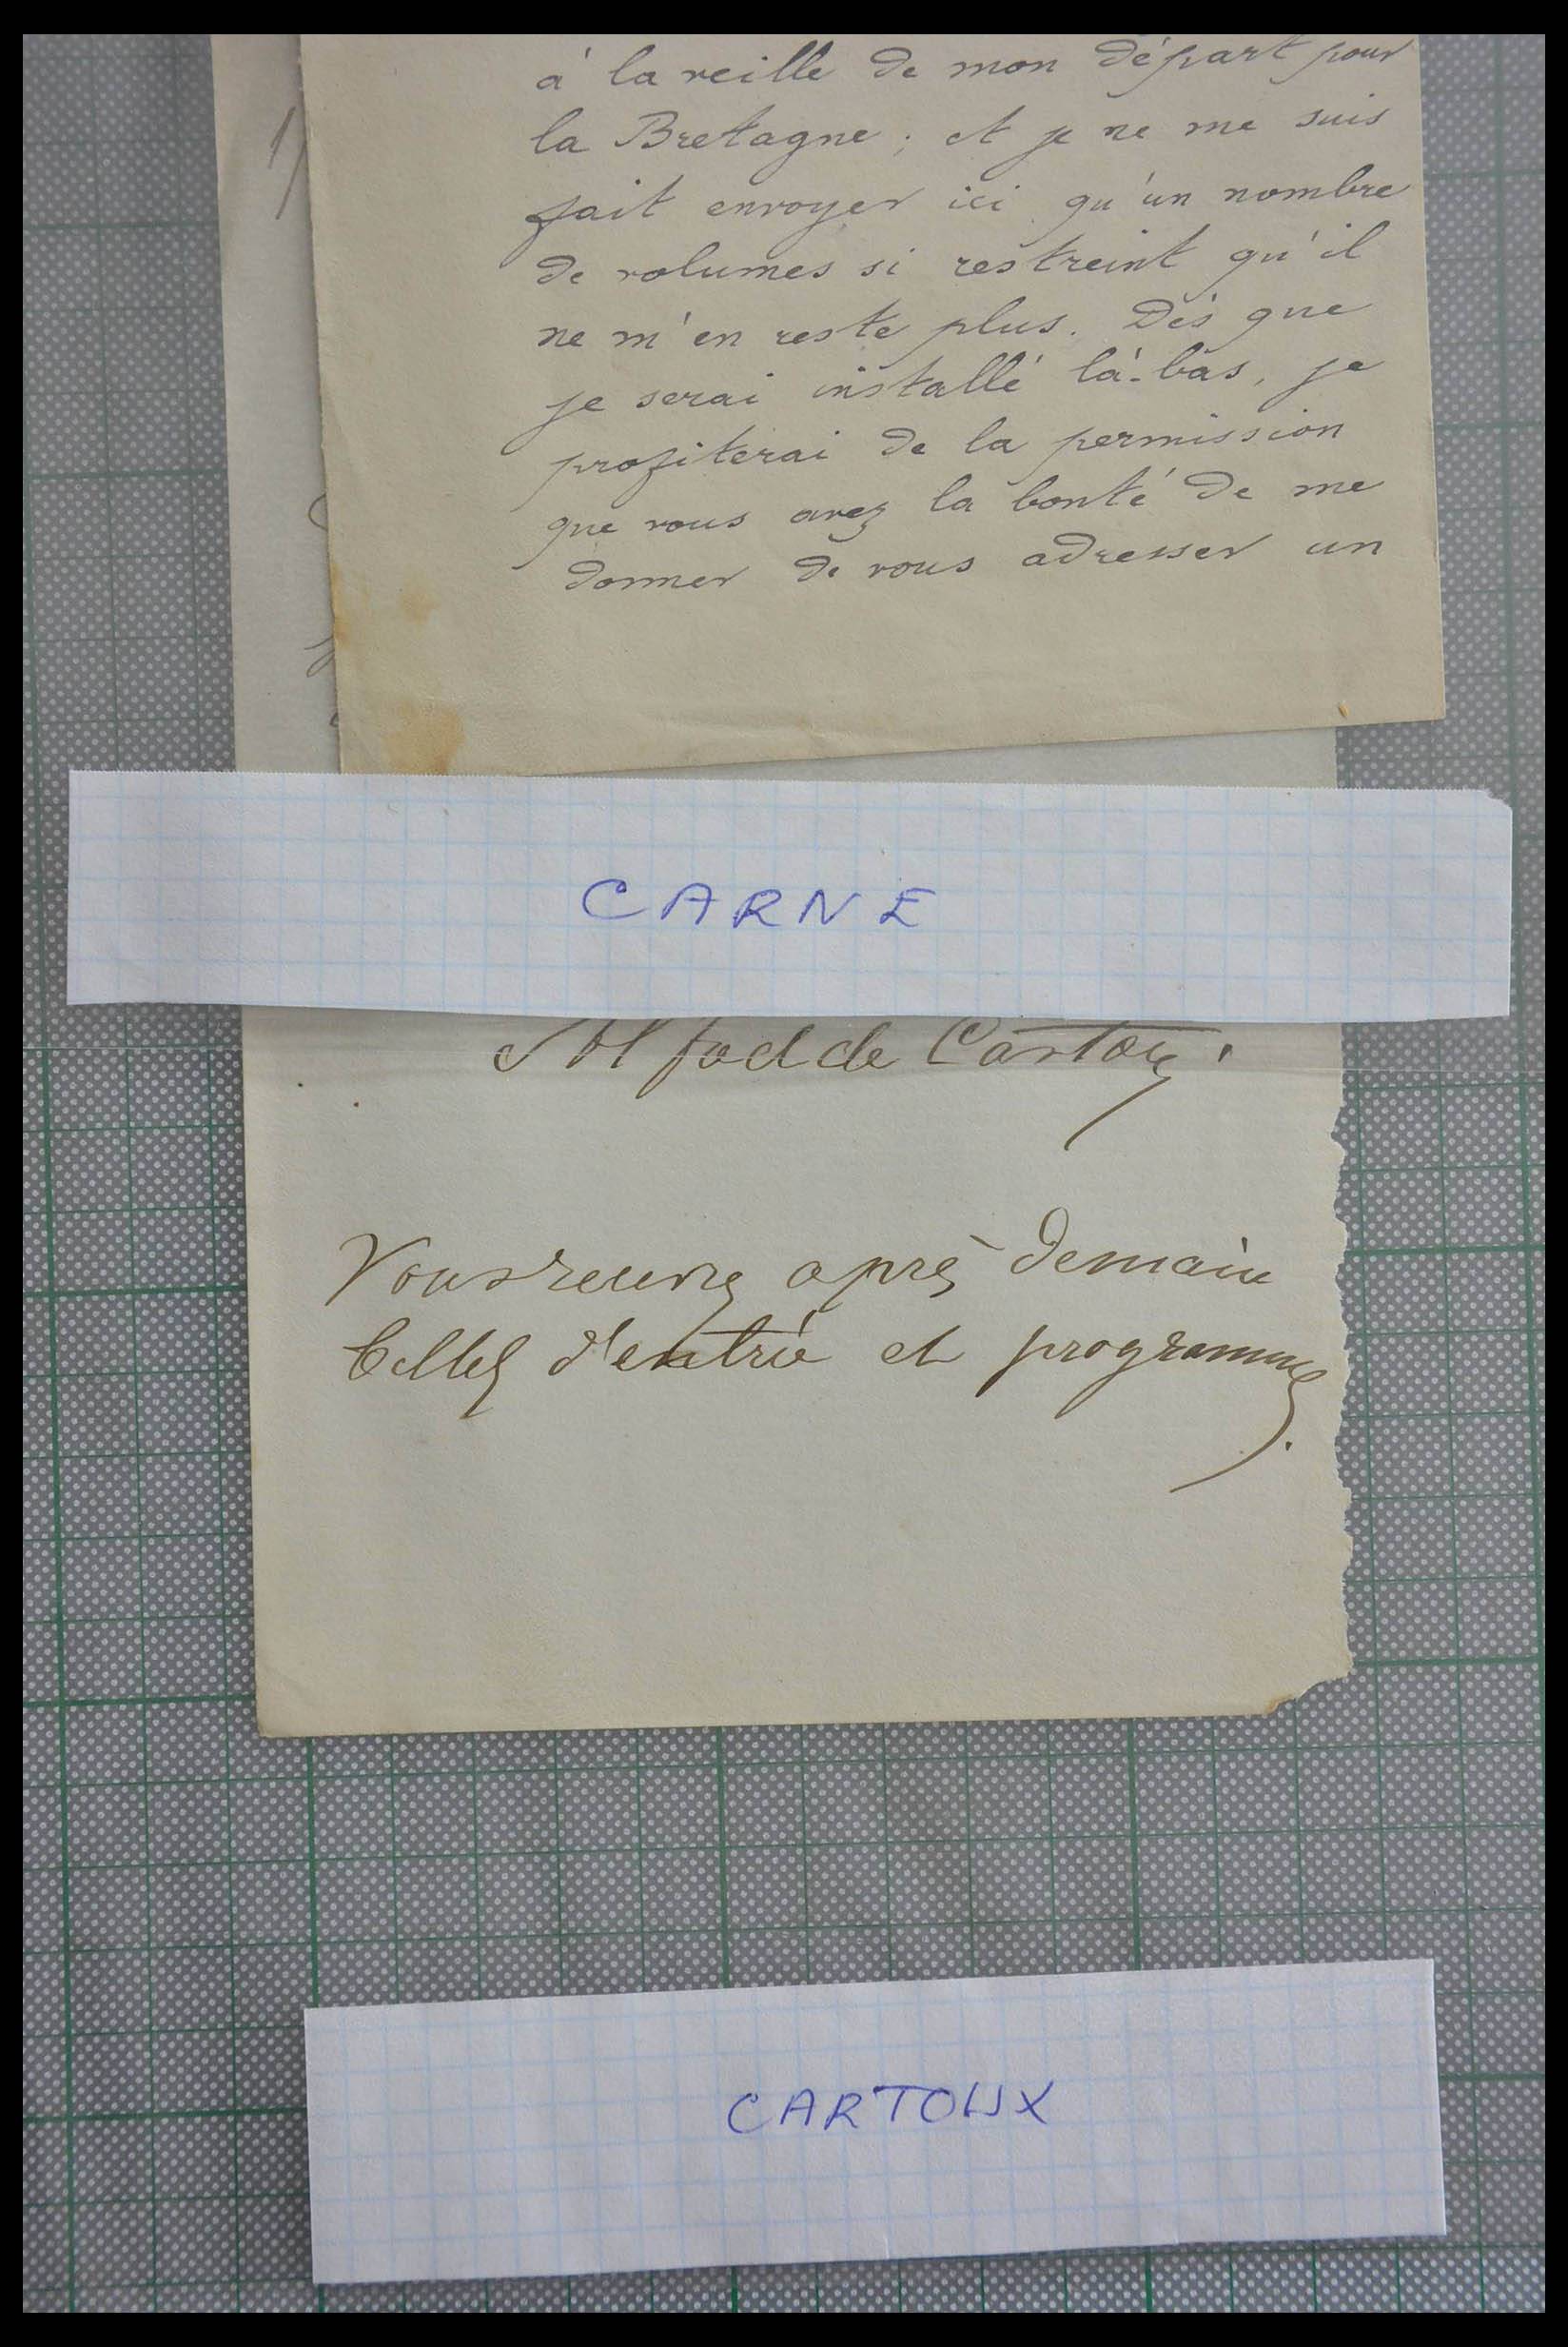 à la veille de mon départ pour
la Bretagne ; et je ne me suis
fait envoyer ici qu'un nombre
de volumes si restreint qu'il
ne m'en reste plus. Dès que
je serai installé là-bas, je
profiterai de la permission
que vous avez la bonté de me
donner de vous adresser un
CARNE
de
Vous recevrez après demain
billets d'entrée et programmes.
CARTOUX